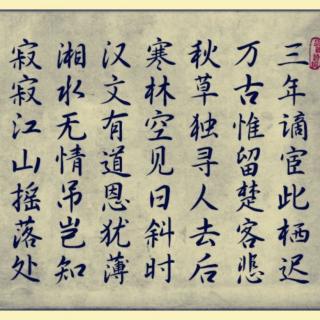 三年谪宦此栖迟
万古惟留楚客悲
秋草独寻人去后
寒林空见日斜时
汉文有道恩犹薄
湘水无情吊岂知
寂寂江山摇落处